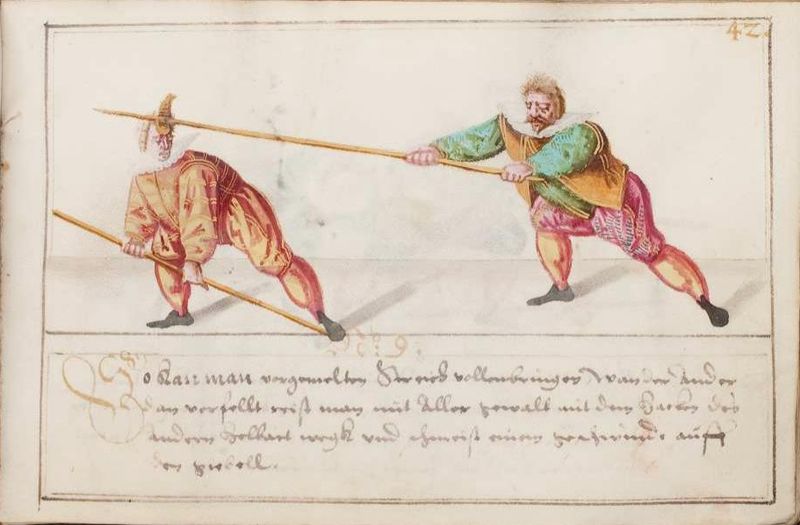 42.
No. 9.
So kan man vorgemelten Streich vollenbringen wan der ander
dan verfellt reist man mit Aller gewalt mit dem hacken des
andern helbart wegk und schmeist einem geschwinde auff
den giebell.